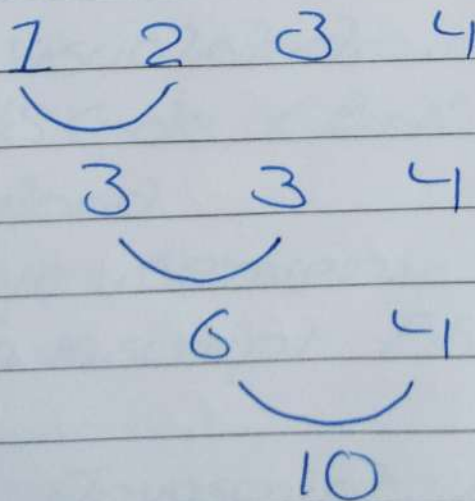 1 2 3 4
3 3 4
6 4
10